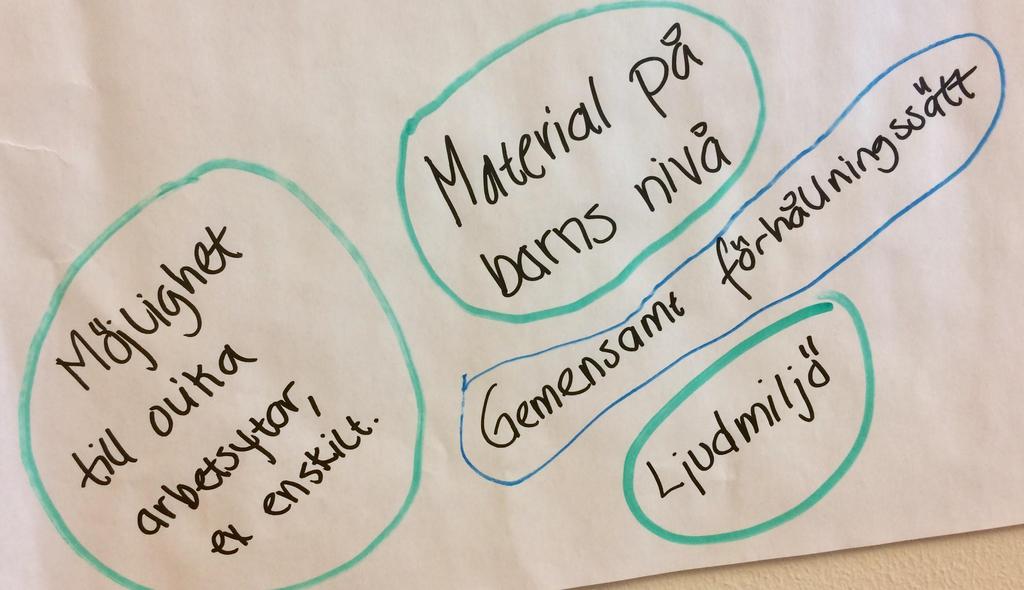 Material på
barns nivå
Gemensamt förhållningssätt
Ljudmiljö
Möjlighet
till olika
arbetsytor,
ex enskilt.